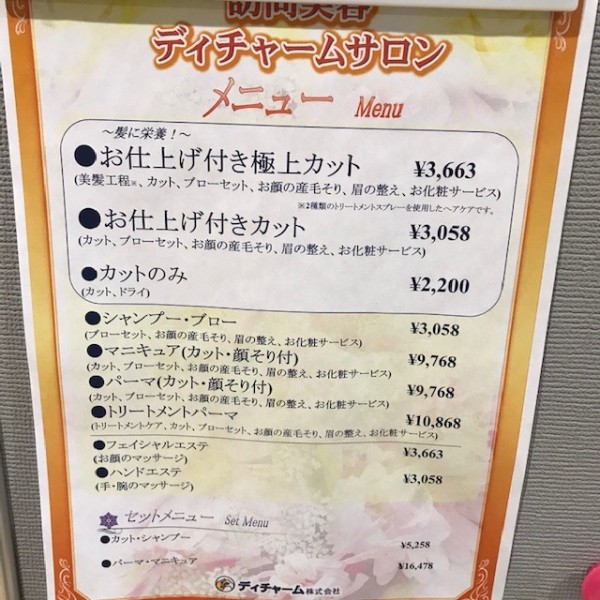 訪問美容
ディチャームサロン
メニュー Menu
～髪に栄養！～
●お仕上げ付き極上カット ¥3,663
(美髪工程※、カット、ブローセット、お顔の産毛そり、眉の整え、お化粧サービス)
※2種類のトリートメントスプレーを使用したヘアケアです。
●お仕上げ付きカット ¥3,058
(カット、ブローセット、お顔の産毛そり、眉の整え、お化粧サービス)
●カットのみ ¥2,200
(カット、ドライ)
●シャンプー・ブロー ¥3,058
(ブローセット、お顔の産毛そり、眉の整え、お化粧サービス)
●マニキュア(カット・顔そり付) ¥9,768
(カット、ブローセット、お顔の産毛そり、眉の整え、お化粧サービス)
●パーマ(カット・顔そり付) ¥9,768
(カット、ブローセット、お顔の産毛そり、眉の整え、お化粧サービス)
●トリートメントパーマ ¥10,868
(トリートメントケア、カット、ブローセット、お顔の産毛そり、眉の整え、お化粧サービス)
●フェイシャルエステ ¥3,663
(お顔のマッサージ)
●ハンドエステ ¥3,058
(手・腕のマッサージ)
セットメニュー Set Menu
●カット・シャンプー ¥5,258
●パーマ・マニキュア ¥16,478
ディチャーム株式会社